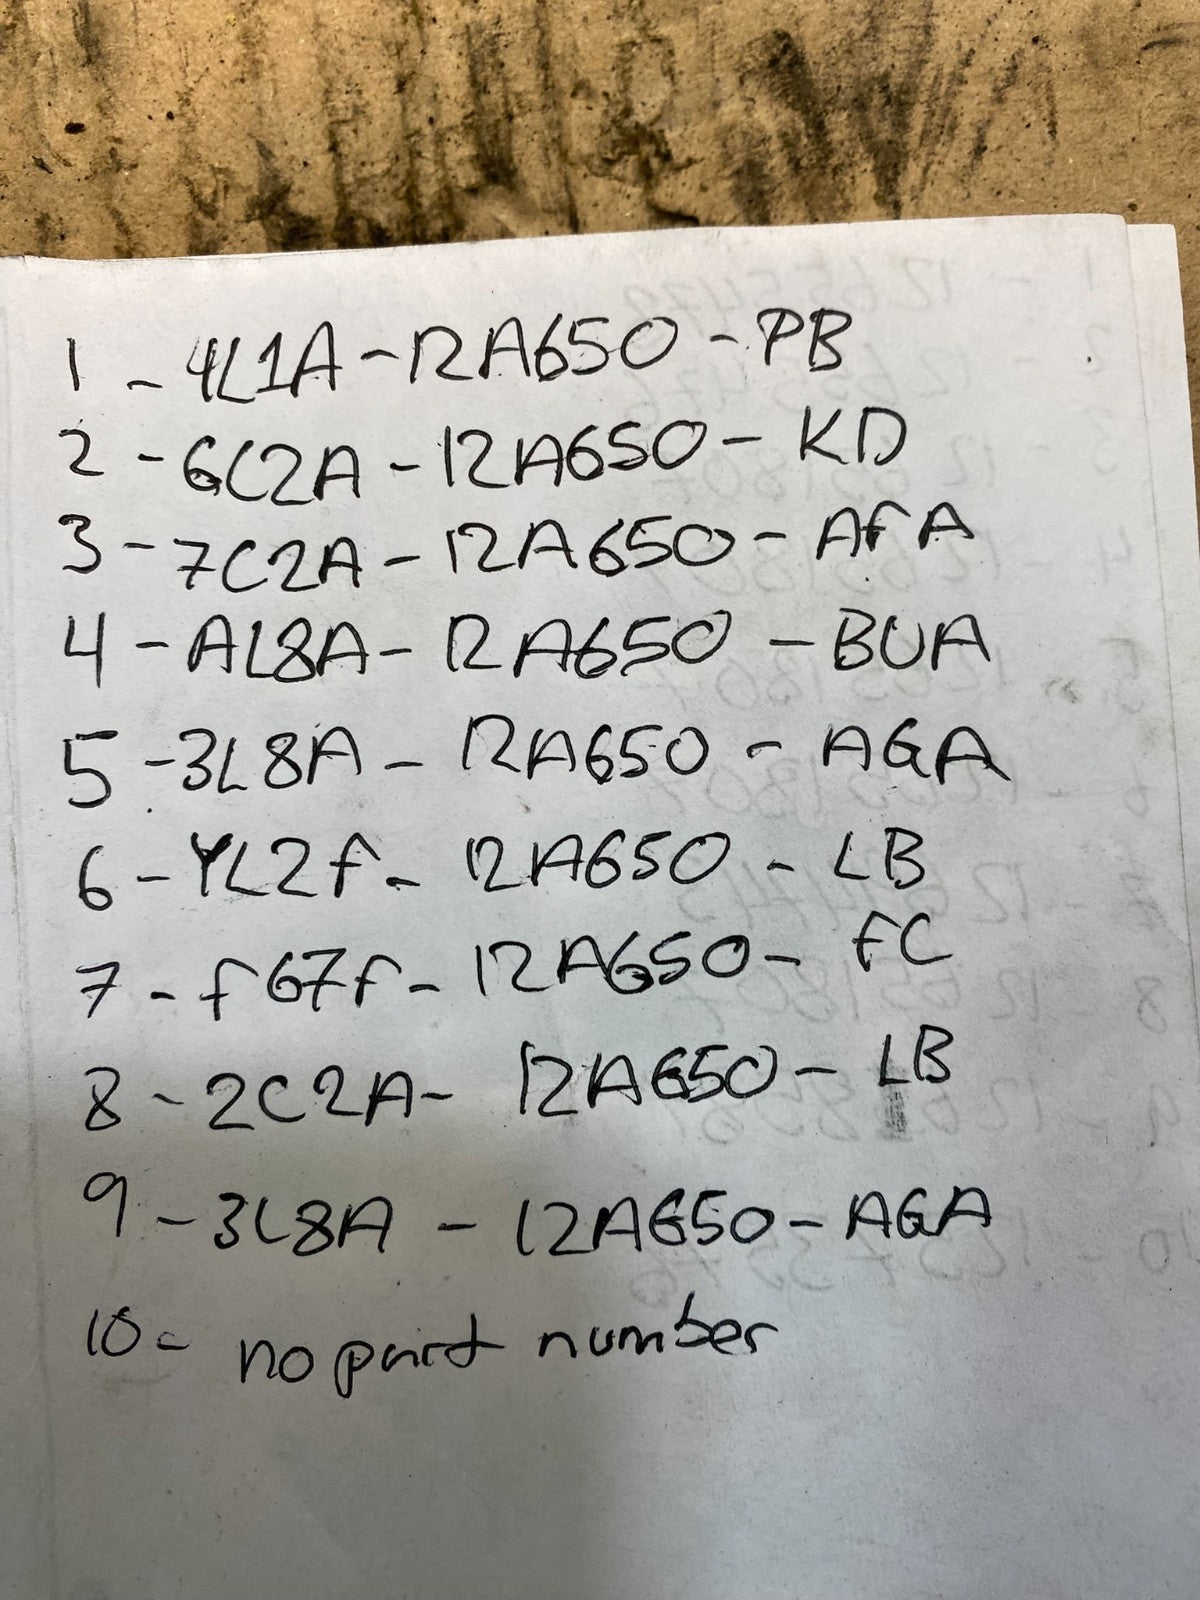 1 - 4L1A - 12A650 - PB
2 - 6C2A - 12A650 - KD
3 - 7C2A - 12A650 - AFA
4 - AL8A - 12A650 - BUA
5 - 3L8A - 12A650 - AGA
6 - YL2f - 12A650 - LB
7 - f67f - 12A650 - fC
8 - 2C2A - 12A650 - LB
9 - 3L8A - 12A650 - AGA
10 - no part number